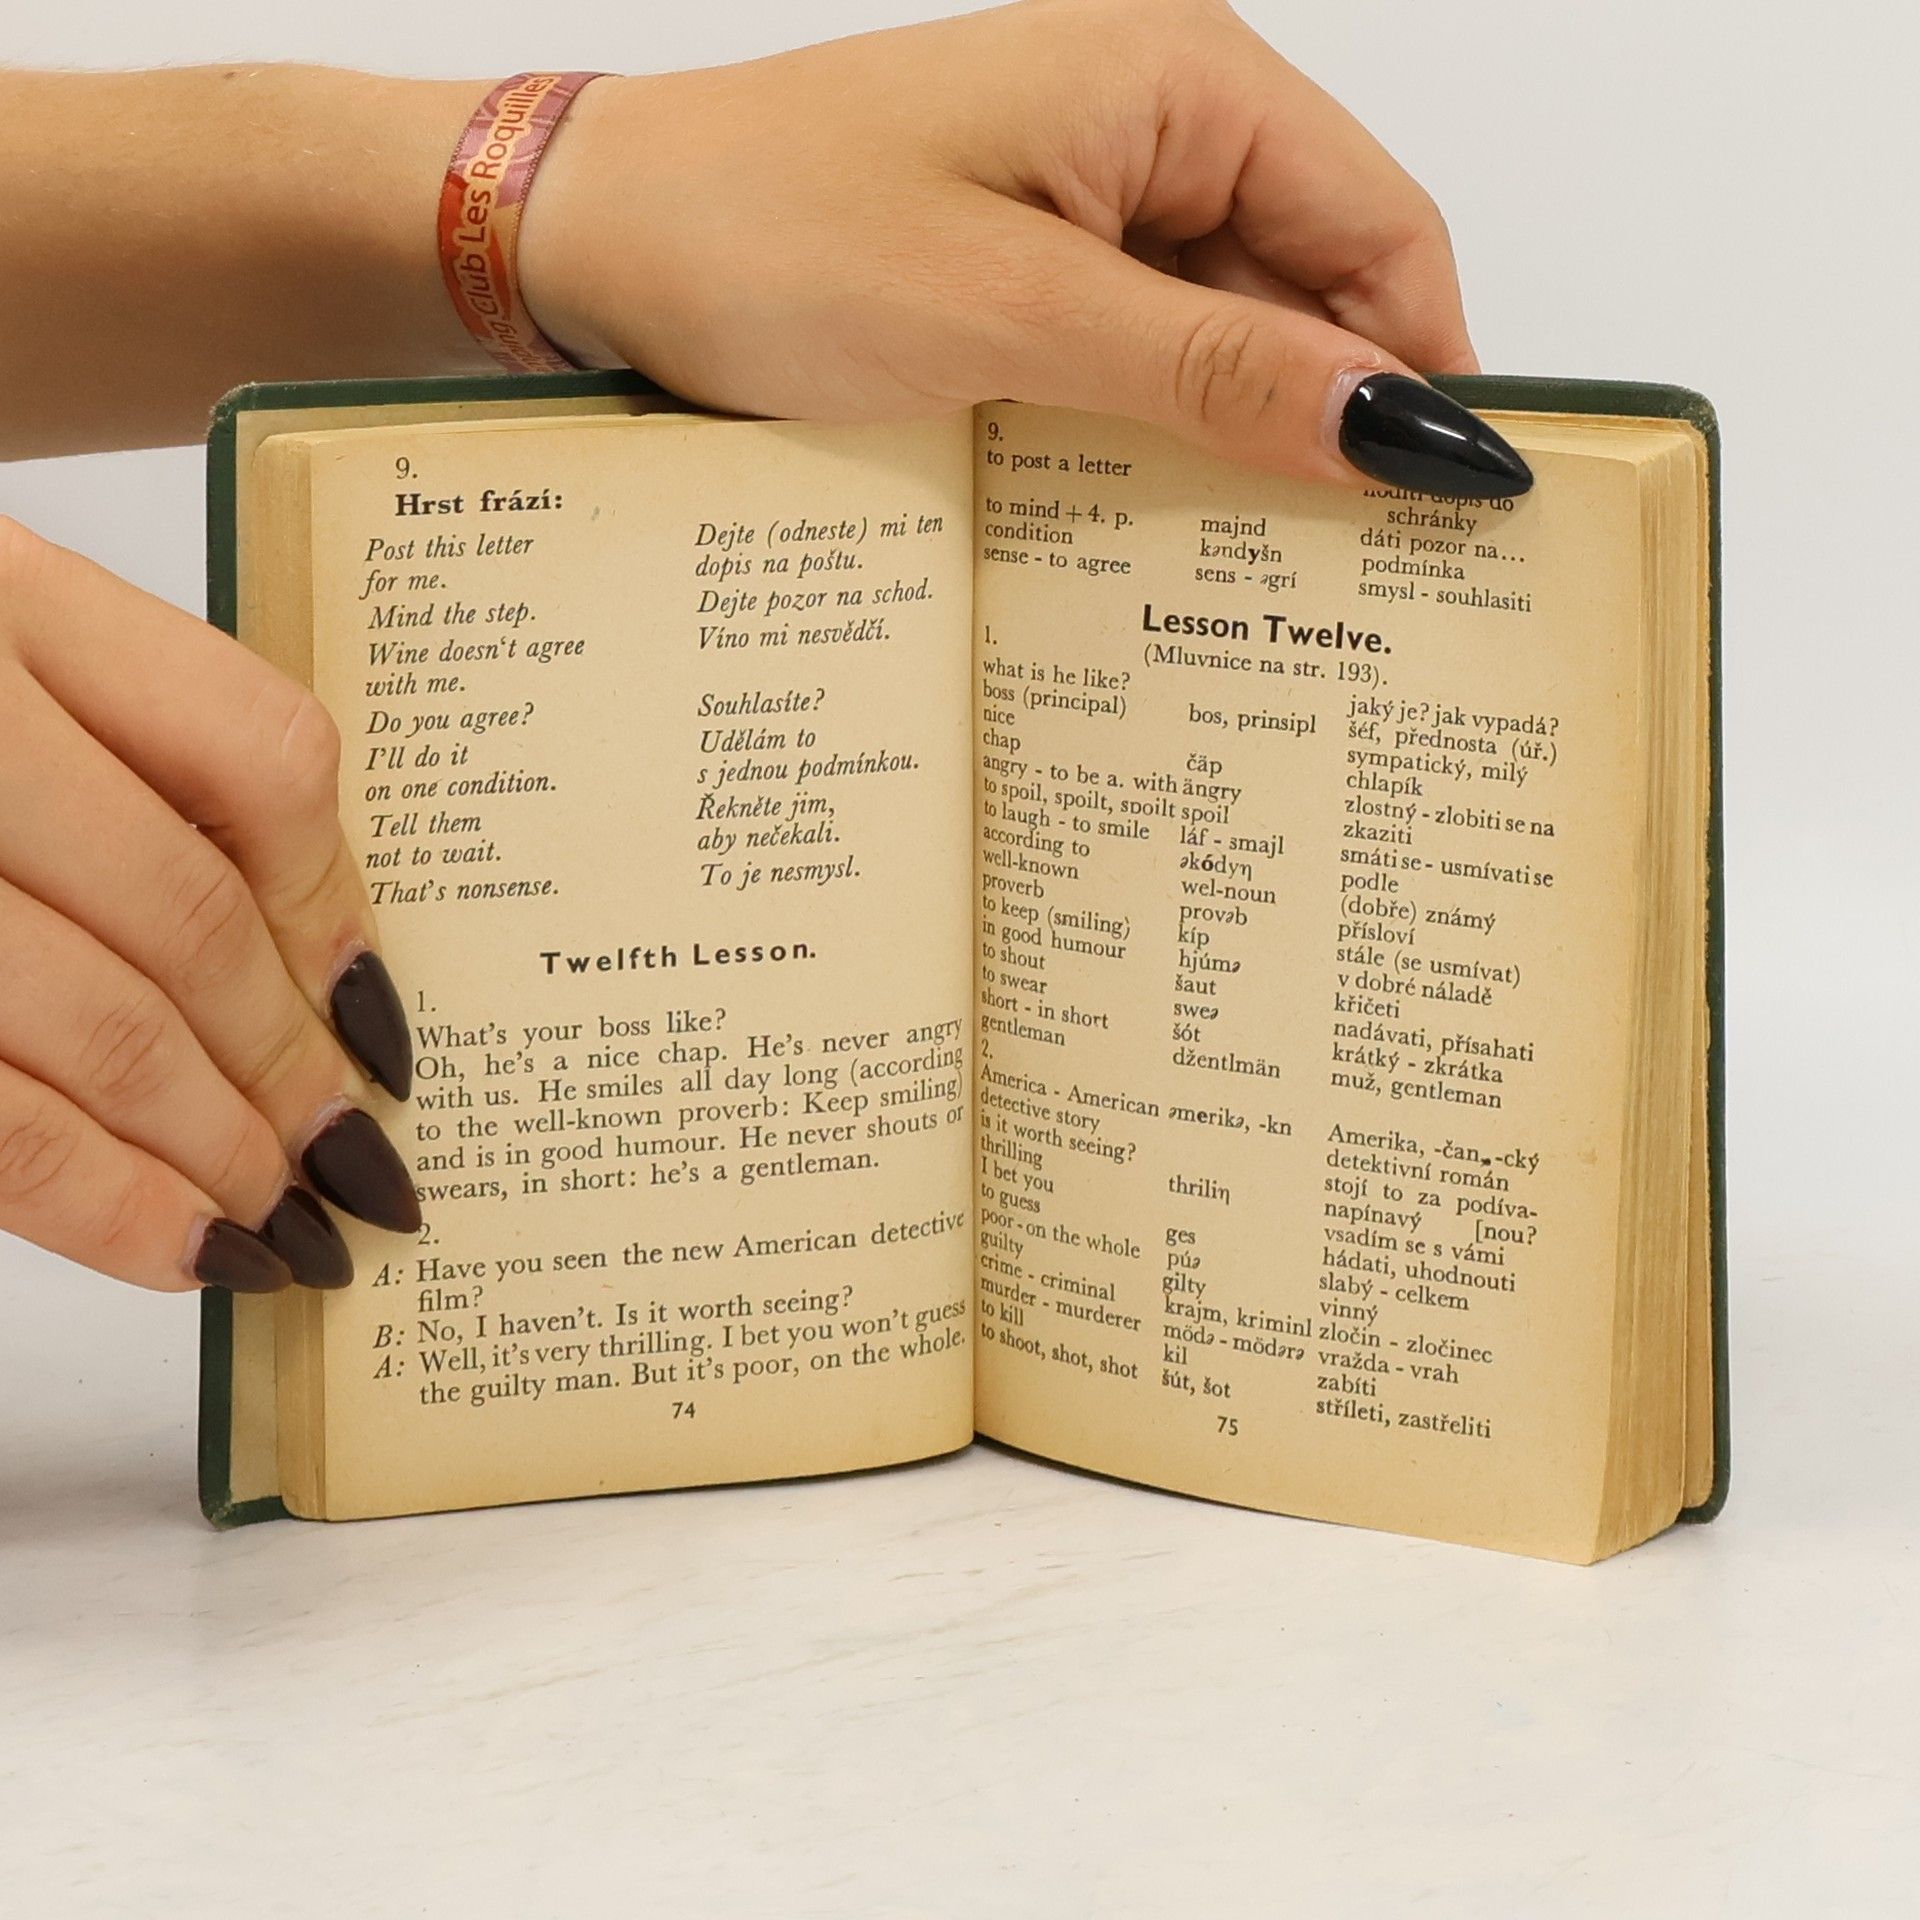 Club Les Roquilles
9.
Hrst frází:
Post this letter
for me.
Mind the step.
Wine doesn‘t agree
with me.
Do you agree?
I’ll do it
on one condition.
Tell them
not to wait.
That’s nonsense.
Dejte (odneste) mi ten
dopis na poštu.
Dejte pozor na schod.
Víno mi nesvědčí.
Souhlasíte?
Udělám to
s jednou podmínkou.
Řekněte jim,
aby nečekali.
To je nesmysl.
Twelfth Lesson.
1.
What’s your boss like?
Oh, he’s a nice chap. He’s never angry
with us. He smiles all day long (according
to the well-known proverb: Keep smiling)
and is in good humour. He never shouts or
swears, in short: he’s a gentleman.
2.
A: Have you seen the new American detective
film?
B: No, I haven’t. Is it worth seeing?
A: Well, it’s very thrilling. I bet you won’t guess
the guilty man. But it’s poor, on the whole.
74
9.
to post a letter hoditi dopis do
schránky
to mind + 4. p. majnd dáti pozor na...
condition kəndyšn podmínka
sense - to agree sens - əgrí smysl - souhlasiti
Lesson Twelve.
(Mluvnice na str. 193).
1.
what is he like? jaký je? jak vypadá?
boss (principal) bos, prinsipl šéf, přednosta (úř.)
nice sympatický, milý
chap čäp chlapík
angry - to be a. with ängry zlostný - zlobiti se na
to spoil, spoilt, spoilt spoil zkaziti
to laugh - to smile láf - smajl smáti se - usmívati se
according to əkódyŋ podle
well-known wel-noun (dobře) známý
proverb provəb přísloví
to keep (smiling) kíp stále (se usmívat)
in good humour hjúmə v dobré náladě
to shout šaut křičeti
to swear sweə nadávati, přísahati
short - in short šót krátký - zkrátka
gentleman džentlmän muž, gentleman
2.
America - American əmerikə, -kn Amerika, -čan, -cký
detective story detektivní román
is it worth seeing? stojí to za podíva-
thrilling thriliŋ napínavý [nou?
I bet you vsadím se s vámi
to guess ges hádati, uhodnouti
poor - on the whole púə slabý - celkem
guilty gilty vinný
crime - criminal krajm, kriminl zločin - zločinec
murder - murderer mödə - mödərə vražda - vrah
to kill kil zabíti
to shoot, shot, shot šút, šot stříleti, zastřeliti
75